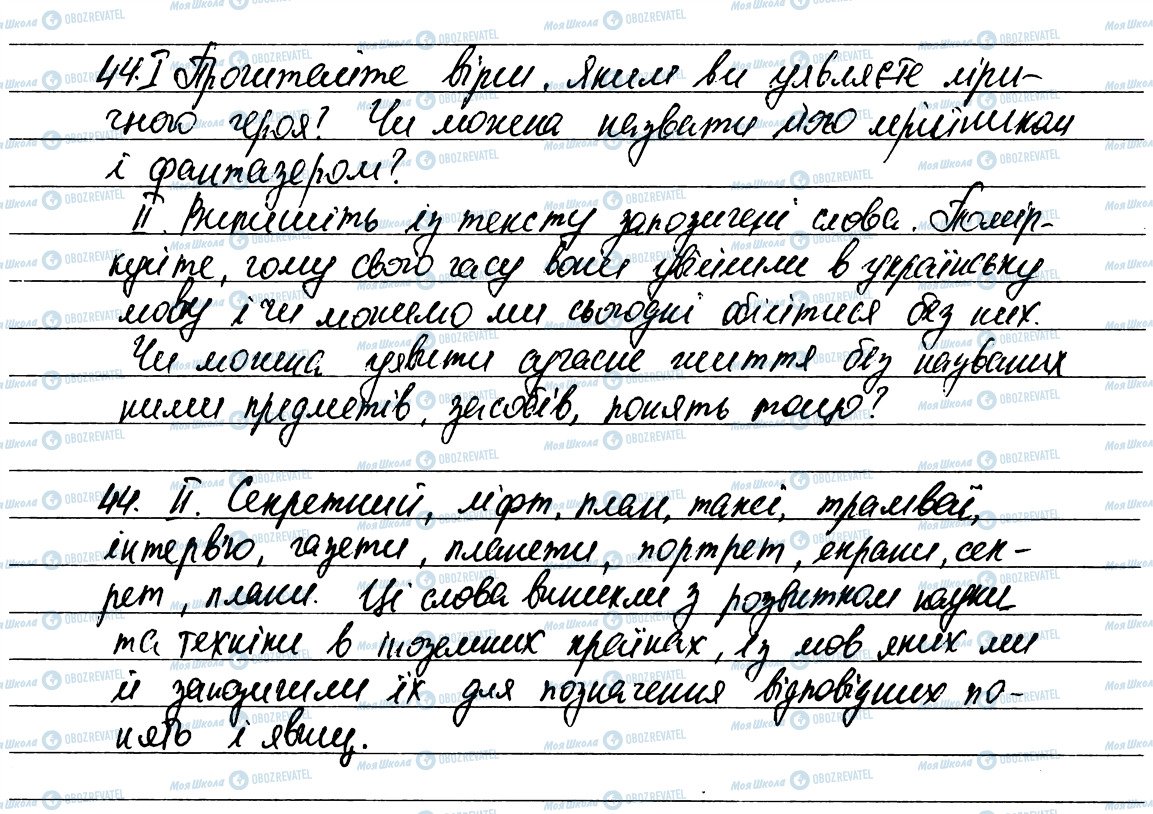 44. I Прочитайте вірш. Яким ви уявляєте ліри-
чного героя? Чи можна назвати його мрійником
і фантазером?
II. Випишіть із тексту запозичені слова. Помір-
куйте, чому свого часу вони увійшли в українську
мову і чи можемо ми сьогодні обійтися без них.
Чи можна уявити сучасне життя без називаних
ними предметів, засобів, понять тощо?
44. II. Секретний, ліфт, план, таксі, трамваї,
інтерв'ю, газети, планети, портрет, екрани, сек-
рет, плани. Ці слова виникли з розвитком науки
та техніки в іноземних країнах, із мов яких ми
й запозичили їх для позначення відповідних по-
нять і явищ.